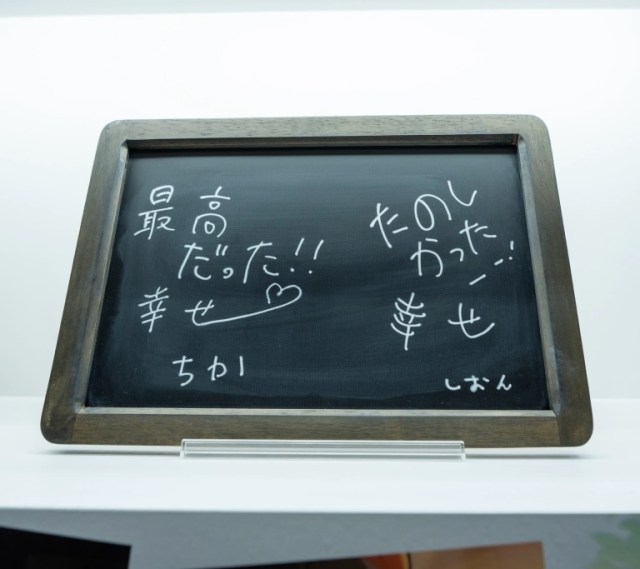 最高
だった!!
幸せ♡
ちか
たのし
かった!!
幸せ
しおん